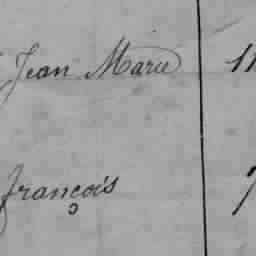 Jean Marie 11
françois 7